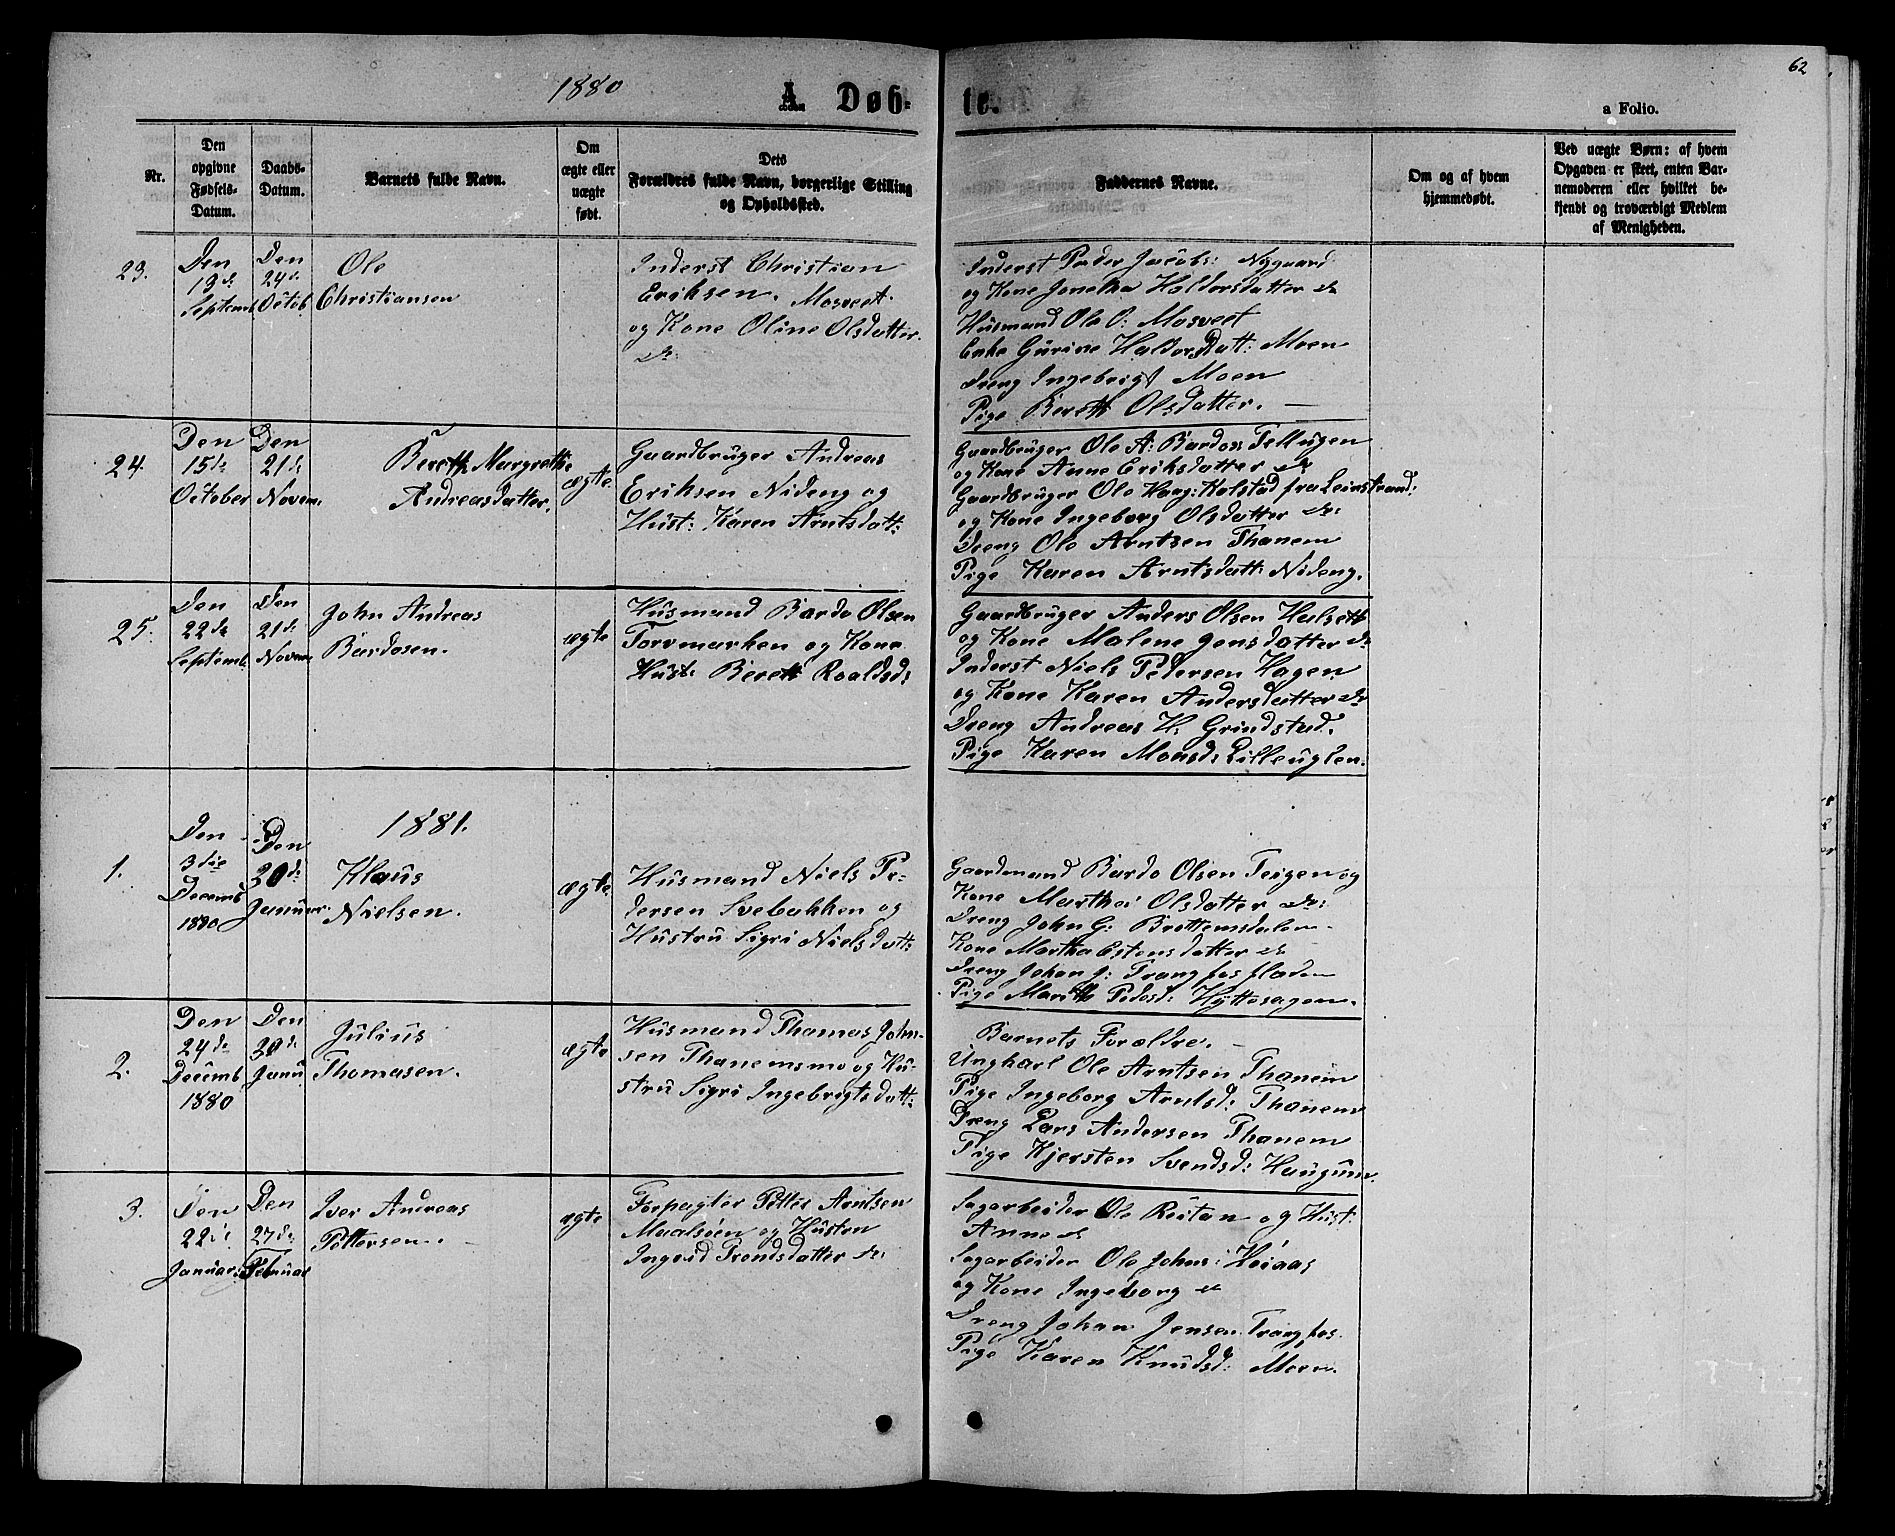 1880
A. Døb-
te.
62
a Folio.
Nr.
Den opgivne Fødsels-Datum.
Daabs-Datum.
Barnets fulde Navn.
Om ægte eller uægte født.
Dets Forældres fulde Navn, borgerlige Stilling og Opholdssted.
Faddernes Navne.
Om og af hvem hjemmedøbt.
Ved uægte Børn: af hvem Opgaven er skeet, enten Barnemoderen eller hvilket bekjendt og troværdigt Medlem af Menigheden.
23.
Den
13de
Septemb
Den
24de
Octob
Ole
Christiansen
Inderst Christian
Eriksen. Mosveet
og Kone Oline Olsdatter.
do:
Inderst Peder Jacobs: Nygaard
og Kone Jonetta Haldorsdatter do
Husmand Ole O: Mosveet
Enke Gurine Haldorsdatt: Moen
Dreng Ingebrigt Moen
Pige Berett Olsdatter. —
24.
Den
15de
October
Den
21de
Novem.
Berett Margrethe
Andreasdatter.
ægte.
Gaardbruger Andreas
Eriksen Nideng og
Hust: Karen Arntsdatt:
Gaardbruger Ole A: Bardos: Tellugen
og Kone Anne Eriksdatter do
Gaardbruger Ole Haag: Kolstad fra Leinstrand:
og Kone Ingeborg Olsdatter do:
Dreng Ole Arntsen Thanem
Pige Karen Arntsdatt: Nideng.
25.
Den
22de
Septemb.
Den
21de
Novem
John Andreas
Bardosen.
ægte
Husmand Bardo Olsen
Torvmarken og Kone
Hust: Berett Roaldsd:
Gaardbruger Anders Olsen Hulsett
og Kone Malene Jensdatter do
Inderst Niels Pedersen Hagen
og Kone Karen Andersdatter do
Dreng Andreas H. Grindstad.
Pige Karen Monsd: Lilleuglen.
1881.
1.
Den
3die
Decemb
1880
Den
30de
Januar.
Klaus
Nielsen.
ægte.
Husmand Niels Pe-
dersen Svebakken og
Hustru Sigri Nielsdatt:
Gaardmand Bardo Olsen Teigen og
Kone Martha Olsdatter do:
Dreng John G: Brettemsdalen
Kone Martha Estensdatter do
Dreng Johan J: Trangfosfladen
Pige Maritt Pedersd: Hyttesagen.
2.
Den
24de
Decemb
1880
Den
30de
Janu
Julius
Thomasen.
ægte
Husmand Thomas John-
sen Thanemsmo og Hu-
stru Sigri Ingebrigtsdatt:
Barnets Forældre.
Ungkarl Ole Arntsen Thanem
Pige Ingeborg Arntsd: Thanem
Dreng Lars Andersen Thanem
Pige Kjersten Svendsd: Haugum.
3.
Den
22de
Januar:
Den
27de
Februar
Iver Andreas
Pettersen.
ægte
Forpagter Petter Arntsen
Maalsöen og Hustru
Ingrid Trondsdatter do:
Sagarbeider Ole Reitan og Hust:
Anne do
Sagarbeider Ole Johns: Höiaas
og Kone Ingeborg do
Dreng Johan Jensen Trangfos.
Pige Karen Knudsd: Moen.